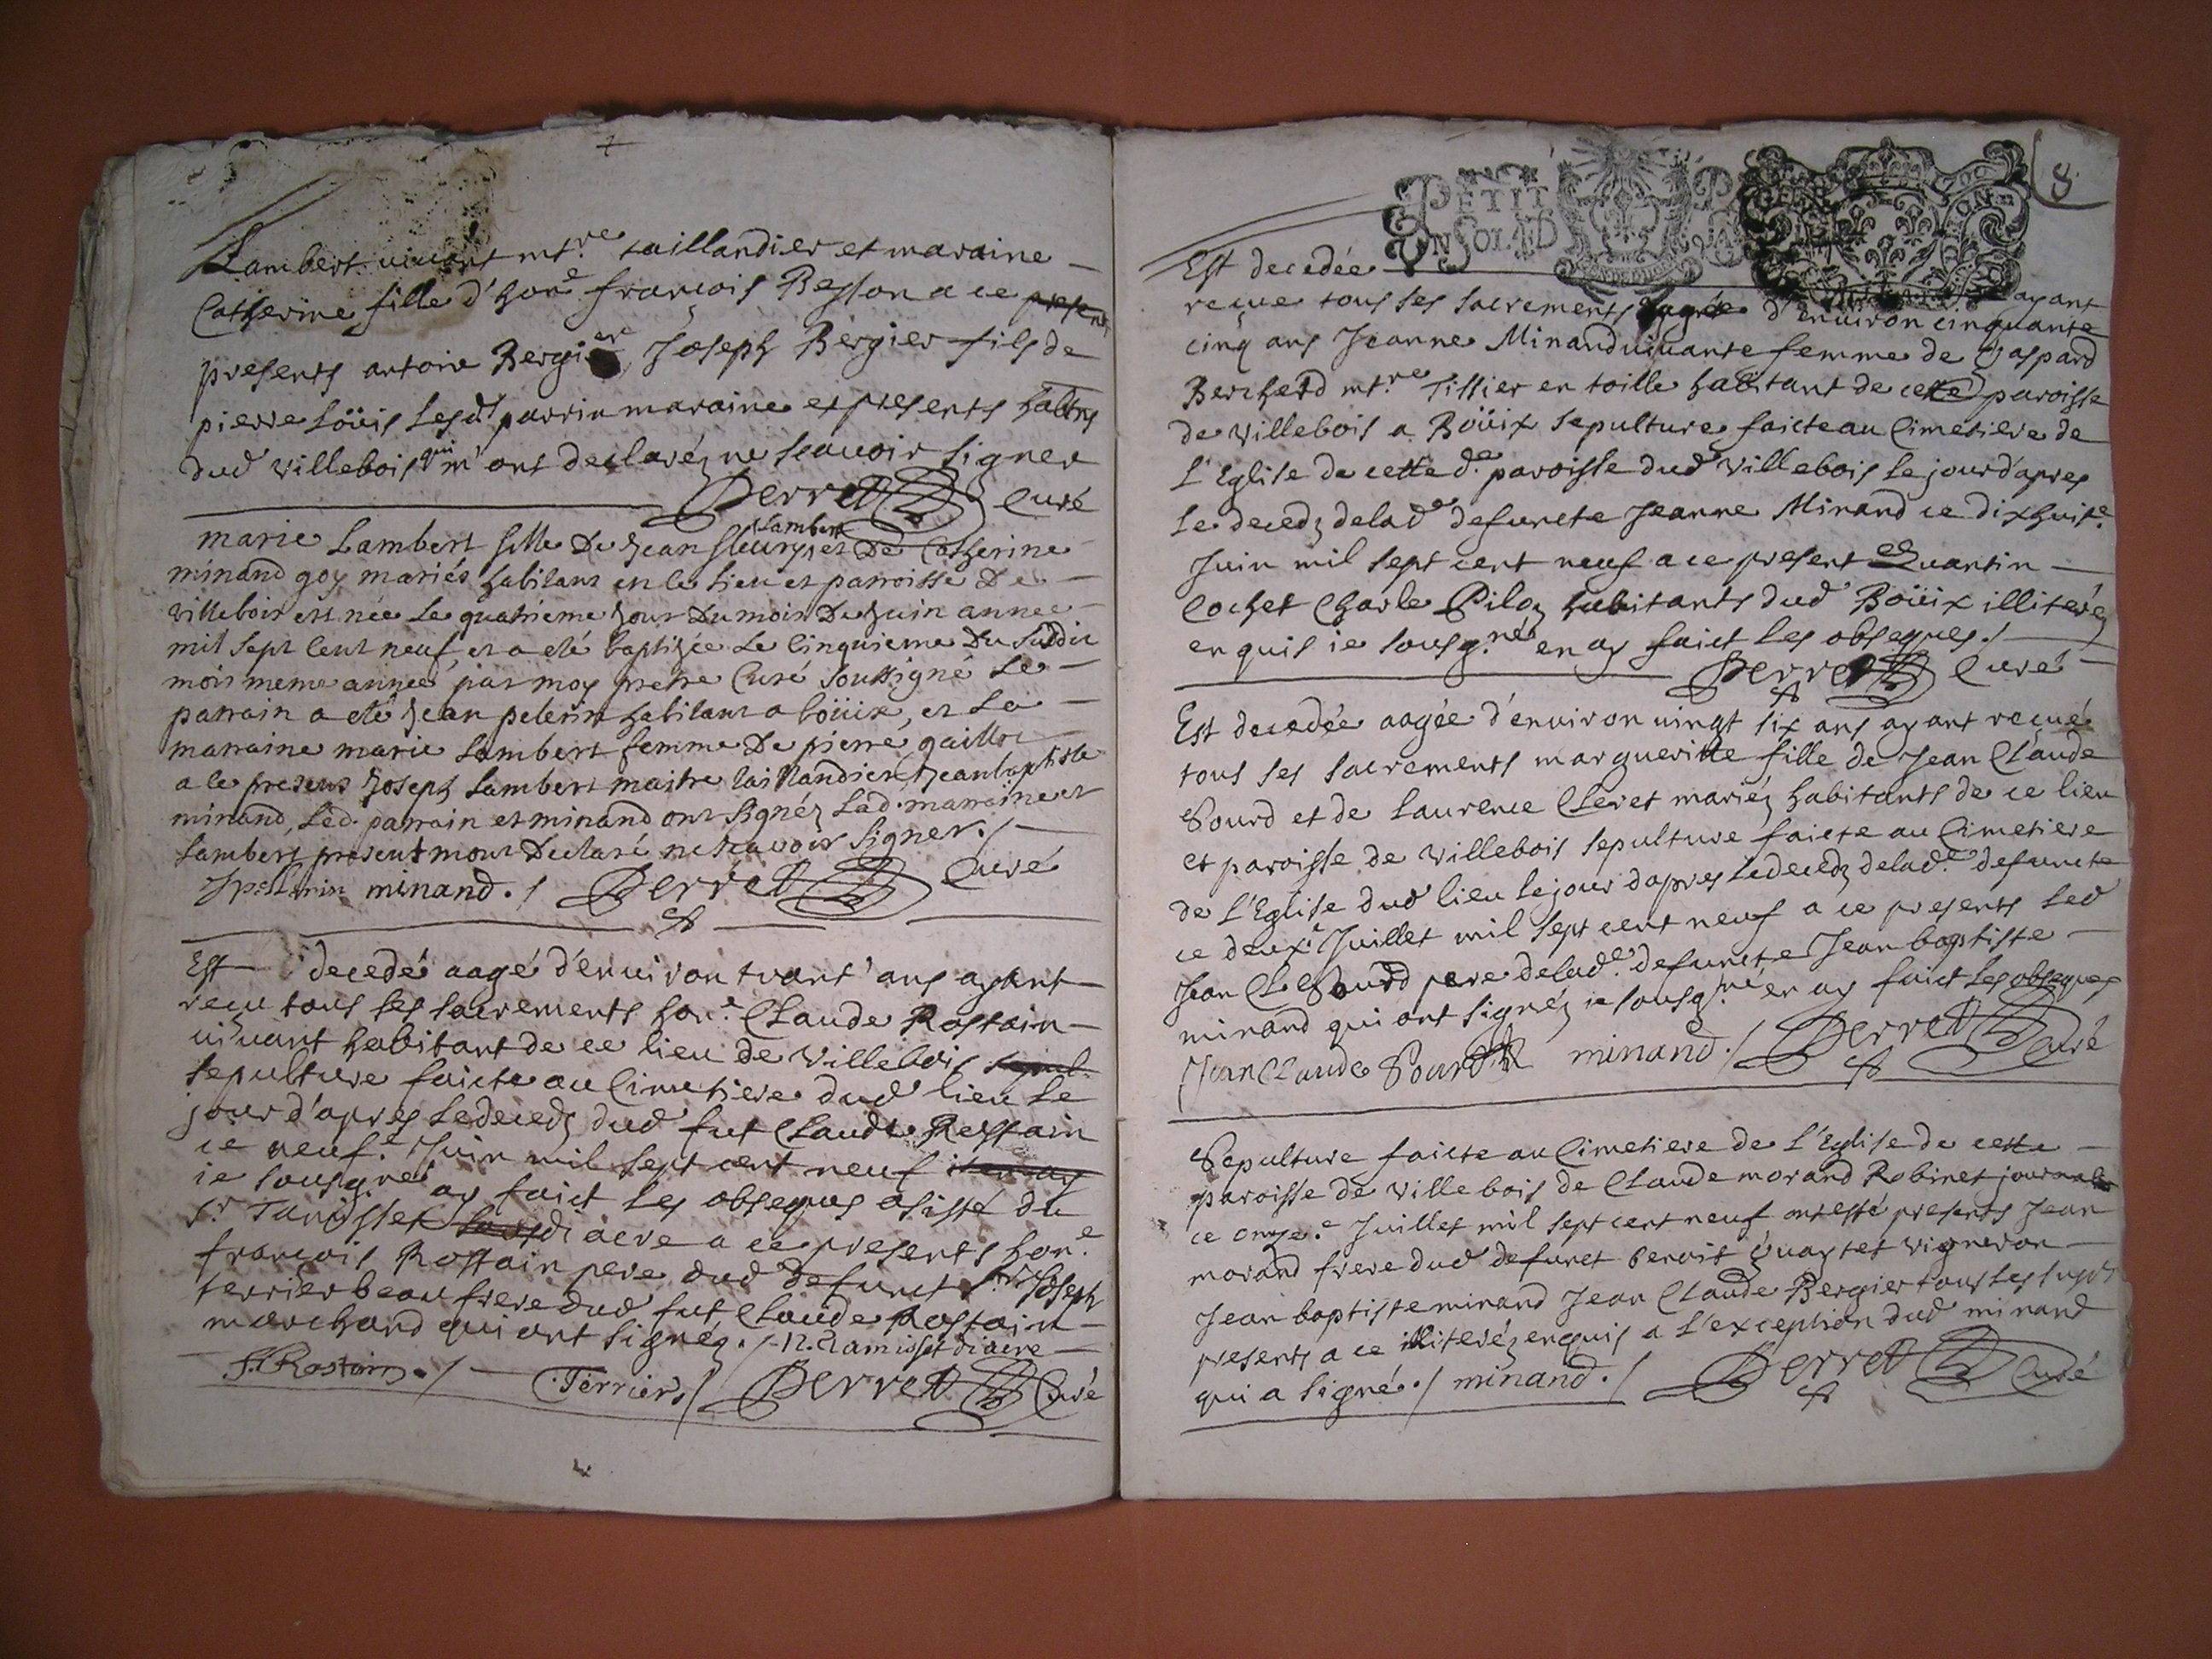 7
Lambert vivant mtre taillandier et maraine
Catherine fille d'hone françois Besson a ce presents
presents antoine Bergier, Joseph Bergier fils de
pierre Loüis lesdt parrin maraine et presents habtns
dud villebois qui m'ont declaréz ne scauoir signer
Perret Curé
marie Lambert fille De Jean fleury Lambert et De Catherine
minand goy mariés habitans en le lieu et parroisse De
villebois est née le quatrieme jour Du mois De Juin annee
mil sept cent neuf, et a eté baptizée Le Cinquieme Du susdit
mois meme année par moy pretre Curé soussigné Le
parrain a eté Jean pelerin habitant a boüix, et La
marraine marie Lambert femme De pierre gaillor
a ce presens Joseph Lambert maitre taillandier, et Jean baptiste
minand, Led. parrain et minand ont signéz Lad. marraine et
Lambert present mont Declaré ne scavoir signer. /
J pelerin minand. / Perret Curé
Est decedé aagé d'enuiron trant' ans ayant
reçu tous ses sacrements hone. Claude Rostain
uiuant habitant de ce lieu de villebois sepul
sepulture faicte au Cimetiere dud lieu le
jour d'apres le decedz dud fut Claude Rostain
ce neufe. Juin mil sept cent neuf
ie sousgné ay faict les obseques asisté du
sr Tamisset diacre a ce presents hone.
françois Rostain pere dud defunct sr Joseph
terrier beau frere dud fut Claude Rostain
marchand qui ont signéz. / N. Tamisset diacre
f. Rostain. / C. Terrier / Perret Curé
8
PETIT PA
UN SOL
Est decedée ayant
reçue tous ses sacrements aagée d'enuiron cinquante
cinq ans Jeanne Minand uiuante femme de Gaspard
Berched mtre Tissier en toille habitant de cette paroisse
de villebois a Boüix sepulture faicte au Cimetiere de
L'Eglise de cette de. paroisse dud villebois le jour d'apres
le decedz de lade defuncte Jeanne Minand ce dixhuite.
Juin mil sept cent neuf a ce present Quantin
Cochet Charle Piloz habitants dud Boüix illiteréz
enquis ie sousgné en ay faict les obseques. /
Perret Curé
Est decedée aagée d'enuiron uingt six ans ayant recué
tous ses sacrements margueritte fille de Jean Claude
Sourd et de Laurence Cleret mariéz habitants de ce lieu
et paroisse de villebois sepulture faicte au Cimetiere
de L'Eglise dud lieu le jour dapres le decedz de lade. defuncte
ce deuxe. Juillet mil sept cent neuf a ce presents led
Jean Cl. Sourd pere de lade. defuncte Jean baptiste
minand qui ont signéz ie sousgné en ay faict les obseques
Jean Claude Sourd minand. / Perret Curé
Sepulture faicte au Cimetiere de L'Eglise de cette
paroisse de villebois de Claude morand Robinet journal
ce onze.e Juillet mil sept cent neuf ont esté presents Jean
morand frere dud defunct benoit Quaytet vigneron
Jean baptiste minand Jean Claude Bergier tous les susdt
presents a ce illiteréz enquis a L'exception dud minand
qui a signé. / minand. / Perret Curé